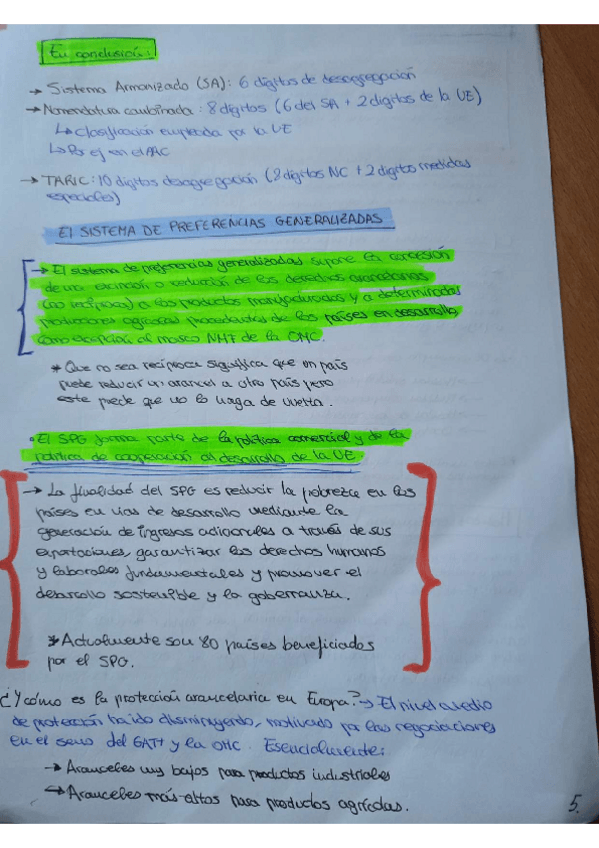 En conclusión:
→ Sistema Armonizado (SA): 6 dígitos de desagregación
→ Nomenclatura combinada: 8 dígitos (6 del SA + 2 dígitos de la UE)
↳ Clasificación empleada por la UE
↳ Por ej en el AAC
→ TARIC: 10 dígitos desagregación (8 dígitos NC + 2 dígitos medidas
especiales)
El SISTEMA DE PREFERENCIAS GENERALIZADAS
→ El sistema de preferencias generalizadas supone la concesión
de una exención o reducción de los derechos arancelarios
(no recíproca) a los productos manufacturados y a determinadas
producciones agrícolas procedentes de los países en desarrollo,
como excepción al marco NMF de la OMC.
* Que no sea recíproca significa que un país
puede reducir un arancel a otro país pero
este puede que no lo haga de vuelta.
• El SPG forma parte de la política comercial y de la
política de cooperación al desarrollo de la UE
→ La finalidad del SPG es reducir la pobreza en los
países en vías de desarrollo mediante la
generación de ingresos adicionales a través de sus
exportaciones, garantizar los derechos humanos
y laborales fundamentales y promover el
desarrollo sostenible y la gobernanza.
* Actualmente son 80 países beneficiados
por el SPG.
¿Y cómo es la protección arancelaria en Europa? → El nivel medio
de protección ha ido disminuyendo, motivado por las negociaciones
en el seno del GATT y la OMC. Esencialmente:
→ Aranceles muy bajos para productos industriales
→ Aranceles más altos para productos agrícolas.
5.